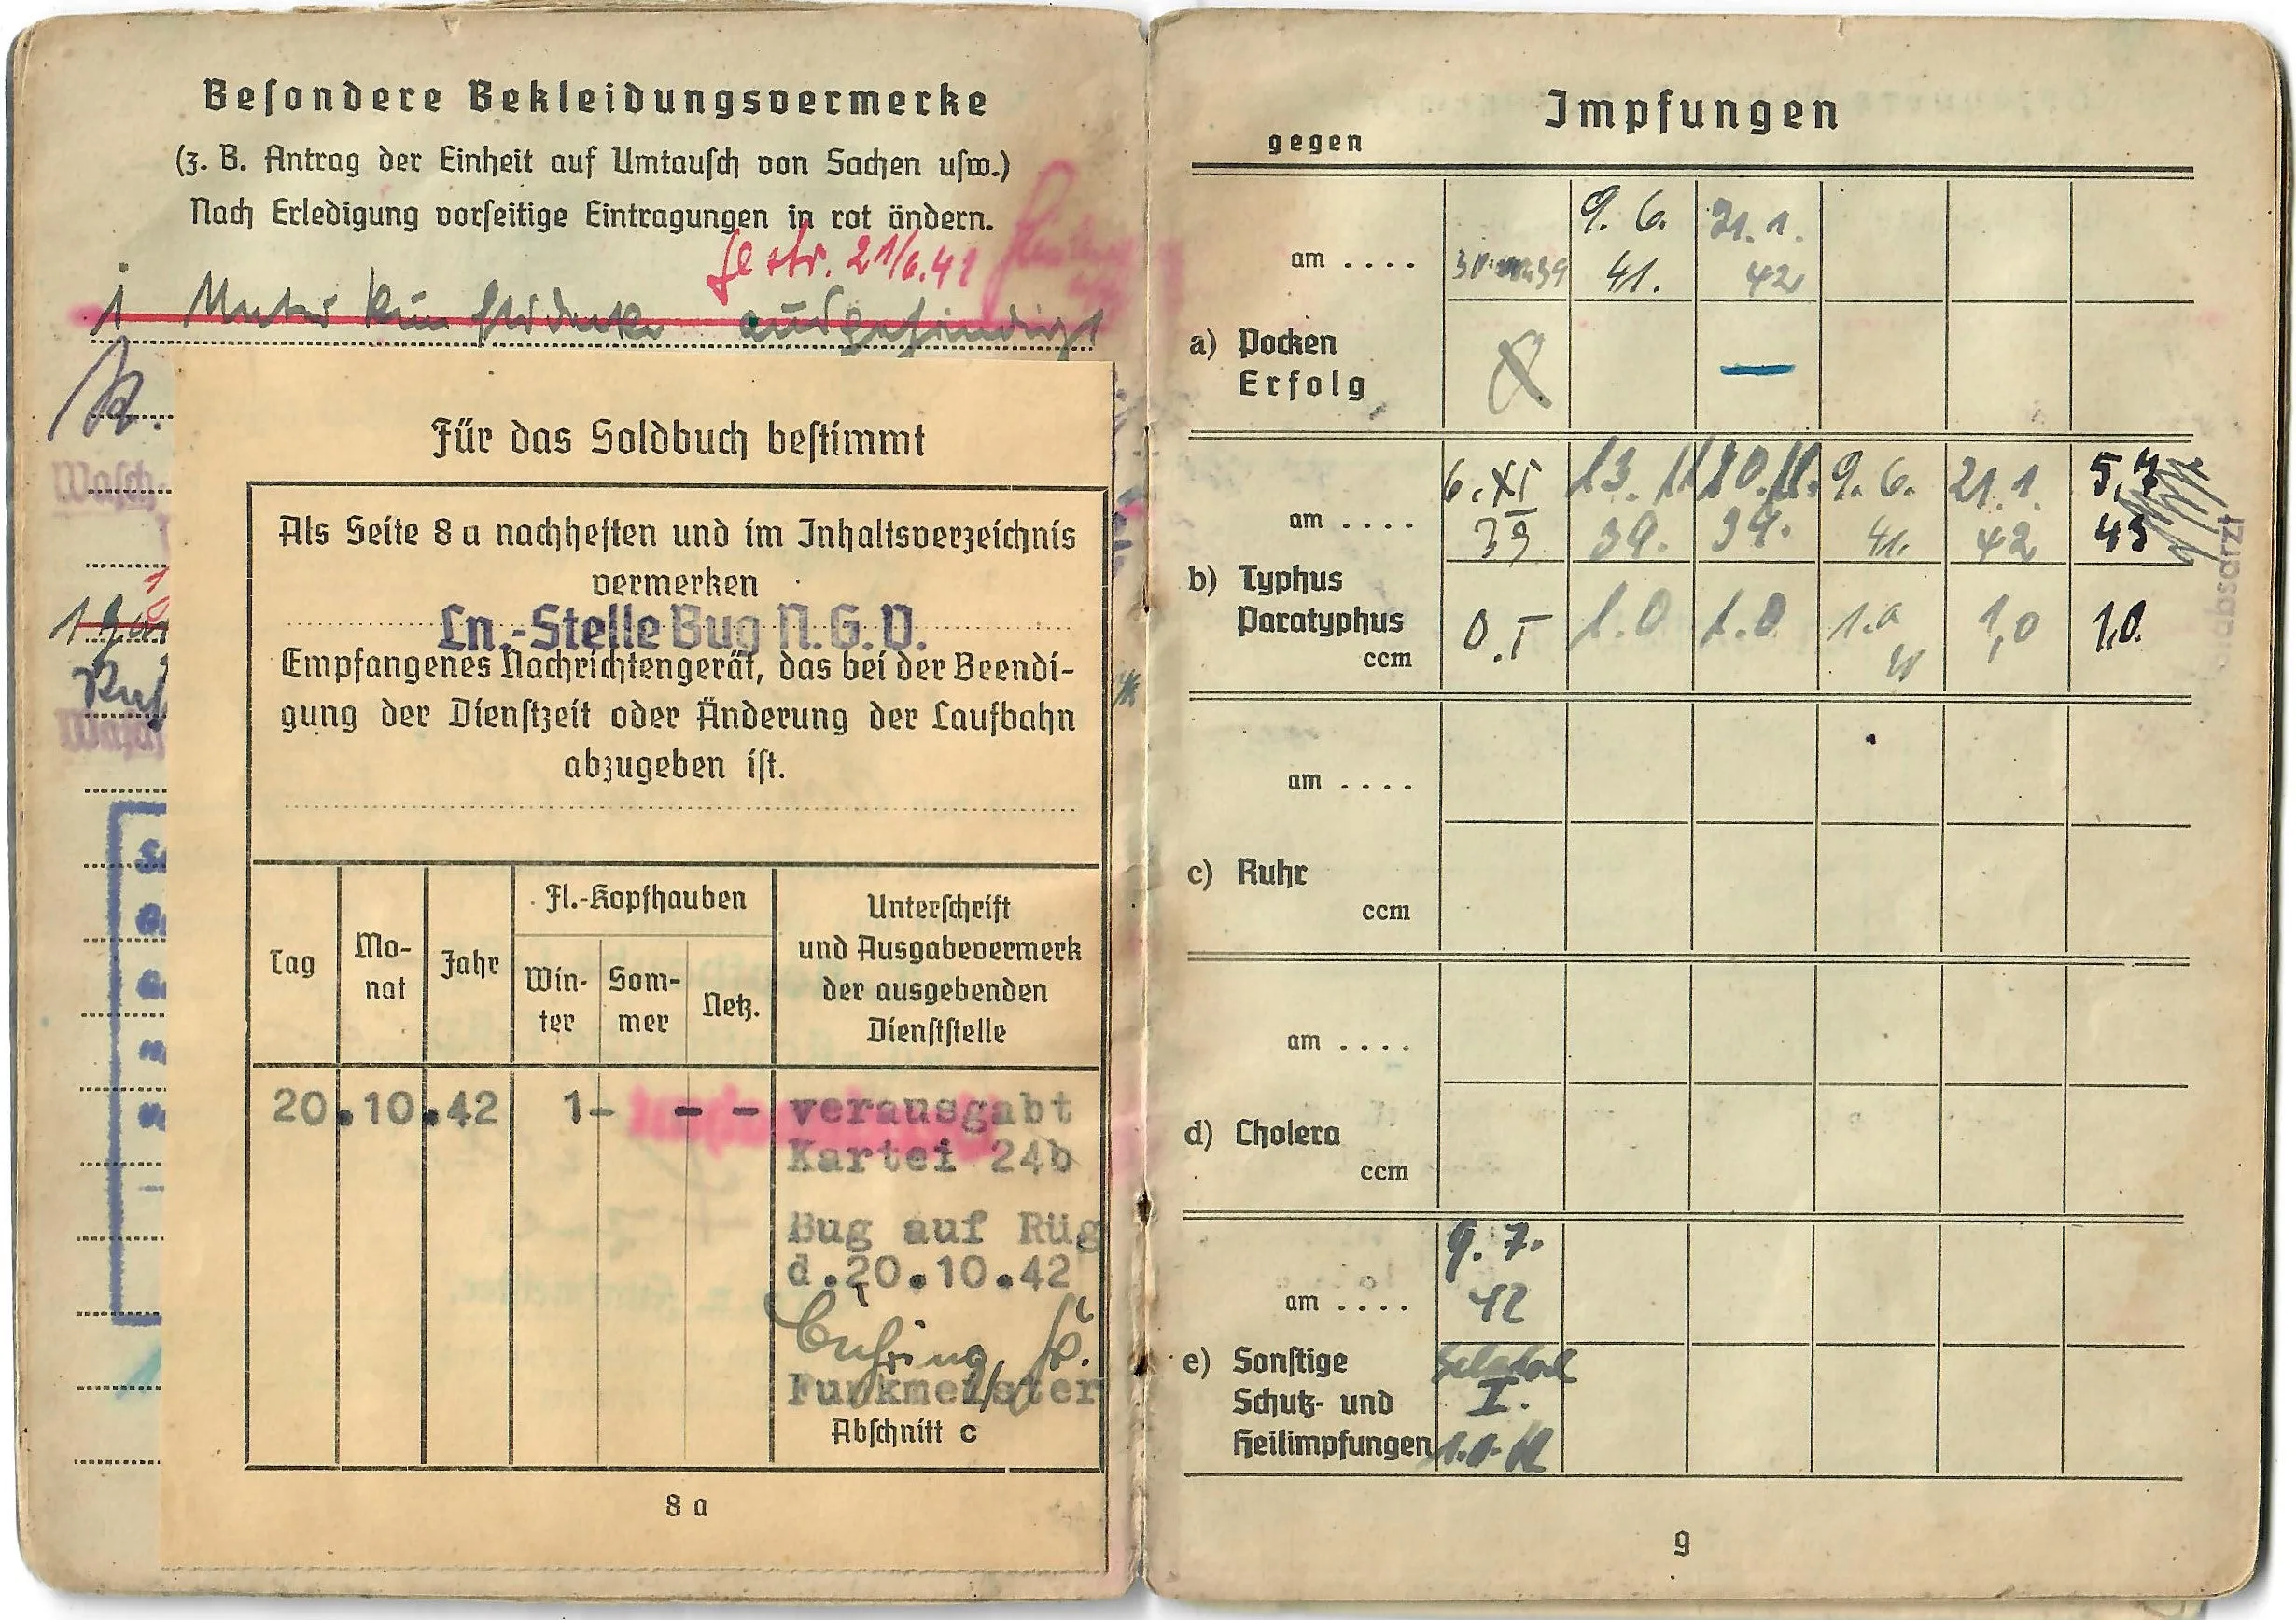 Besondere Bekleidungsvermerke
(z. B. Antrag der Einheit auf Umtausch von Sachen usw.)
Nach Erledigung vorseitige Eintragungen in rot ändern.
gestr. 21/6.41
1 Unterkunftsdecke ausgehändigt
Wasch-
Für das Soldbuch bestimmt
Als Seite 8 a nachheften und im Inhaltsverzeichnis
vermerken
Ln.-Stelle Bug N.G.V.
Empfangenes Nachrichtengerät, das bei der Beendi-
gung der Dienstzeit oder Änderung der Laufbahn
abzugeben ist.
Tag
Mo-
nat
Jahr
Fl.-Kopfhauben
Win-
ter
Som-
mer
Netz.
Unterschrift
und Ausgabevermerk
der ausgebenden
Dienststelle
20.10.42 1- - - verausgabt
Kartei 24b
Bug auf Rüg
d.20.10.42
Funkmeister
Abschnitt c
8 a
Impfungen
gegen
am ....
9. 6.
41.
21. 1.
42
a) Pocken
Erfolg
am ....
6. XI
39
13. 11.
39.
20. 11.
39.
9. 6.
41.
21. 1.
42
5. 7
43
b) Typhus
Paratyphus
ccm
0.5
1.0
1.0
1.0
1,0
1,0.
am ....
c) Ruhr
ccm
am ....
d) Cholera
ccm
am ....
9. 7.
42
e) Sonstige
Schutz- und
Heilimpfungen
I.
9